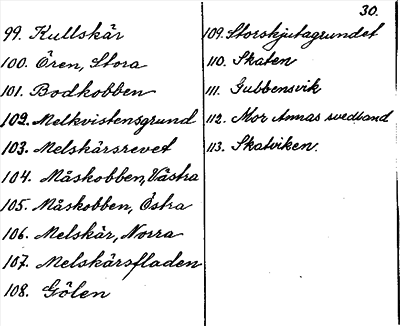 30.
99. Kullskär
100. Ören, Stora
101. Bodkobben
102. Melkvistensgrund
103. Melskärsrevet
104. Måskobben, Västra
105. Måskobben, Östra
106. Melskär, Norra
107. Melskärsfladen
108. Gölen
109. Storskjutagrundet
110. Skaten
111. Gubbensvik
112. Mor Annas svedsand
113. Skatviken.